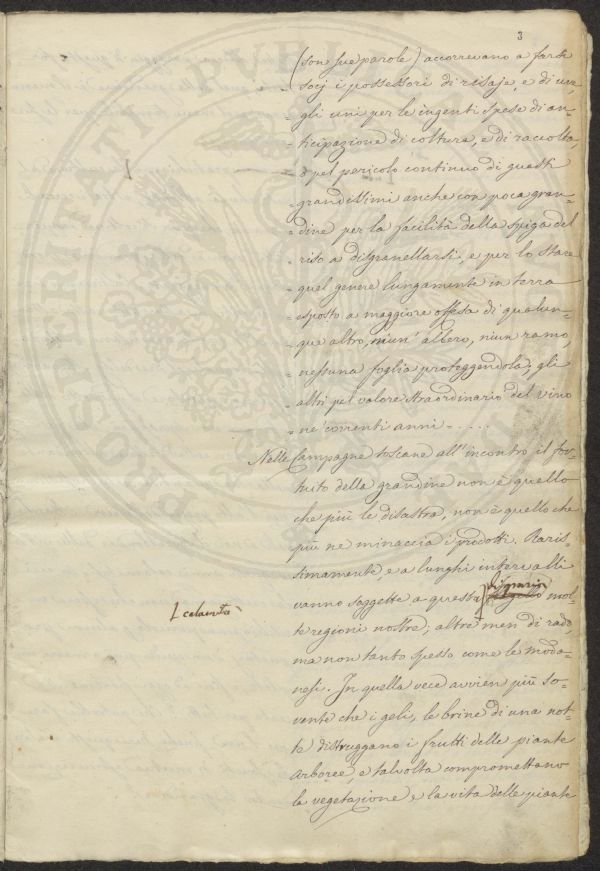 3
(son sue parole) accorrevano a farsi
socj i possessori di risaje, e di uve,
gli uni per le ingenti spese di an-
ticipazione di coltura, e di raccolta,
e pel pericolo continuo di guasti
grandissimi anche con poca gran-
dine per la facilità della spiga del
riso a disgranellarsi, e per lo stare
quel genere lungamente in terra
esposto a maggiore offesa di qualun-
que altro, niun' albero, niun ramo,
nessuna foglia proteggendola; gli
altri pel valore straordinario del vino
ne' correnti anni - . . . . .
Nelle Campagne toscane all' incontro il for-
tuito della grandine non è quello
che più le disastra, non è quello che
più ne minaccia i prodotti. Raris-
simamente, e a lunghi intervalli
vanno soggette a questa mol-
calamità
te regioni nostre; altre men di rado,
ma non tanto spesso come le moda-
nesi. In quella vece avvien più so-
vente che i geli, le brine di una not-
te distruggano i frutti delle piante
arboree, e talvolta compromettano
la vegetazione e la vita delle piante